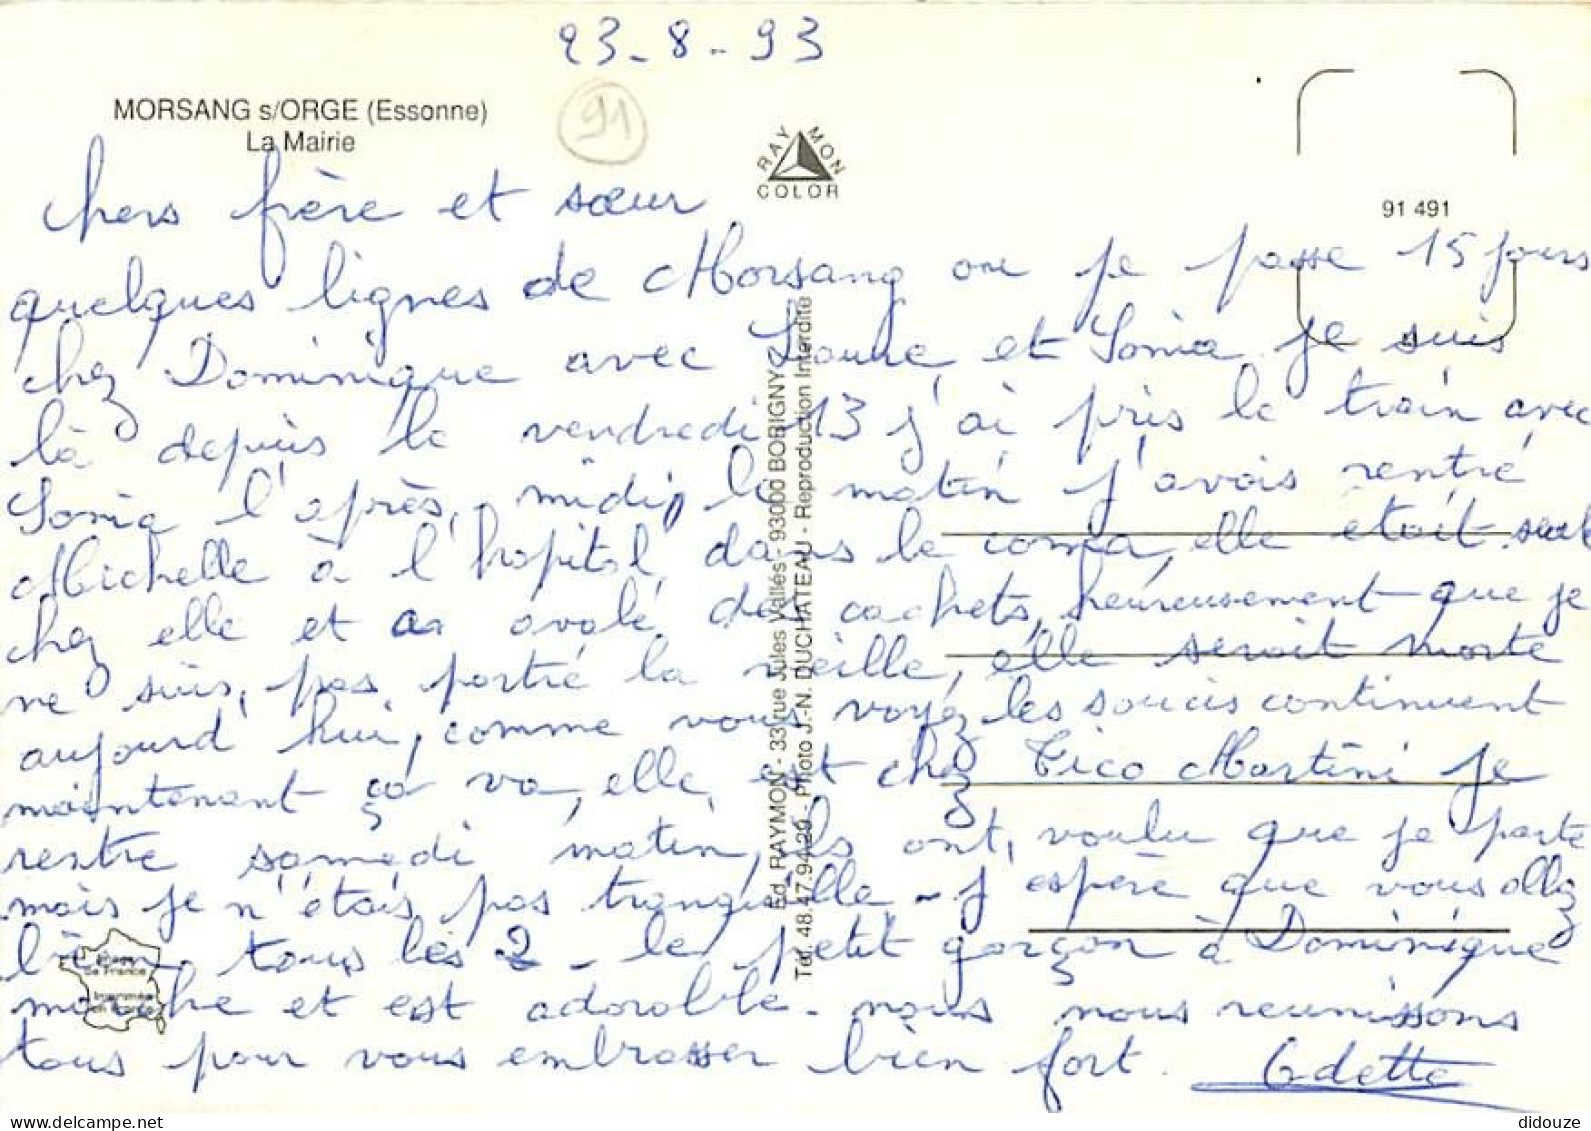 23-8-93
MORSANG s/ORGE (Essonne)
La Mairie
91
RAYMON
COLOR
91 491
chers frère et sœur
quelques lignes de Morsang ou je passe 15 jours
chez Dominique avec Laure et Sonia je suis
là depuis le vendredi 13 j'ai pris le train avec
Sonia l'après, midi, le matin j'avais rentré
Michelle à l'hopital dans le coma, elle était seule
chez elle et a avalé des cachets, heureusement que je
ne suis, pas partie la veille, elle serait morte
aujourd'hui, comme vous voyez les soucis continuent
maintenant ça va, elle, est chez Tico Martini je
rentre samedi matin, ils ont, voulu que je parte
mais je n'étais pas tranquille - j'espère que vous allez
bien tous les 2 - le petit garçon à Dominique
marche et est adorable - nous nous reunissons
tous pour vous embrasser bien fort. Odette
Ed. RAYMON - 33, rue Jules Vallès - 93000 BOBIGNY
Tél. 48.47.94.29 - Photo J.-N. DUCHATEAU - Reproduction Interdite
de France
Imprimée
en France
didouze